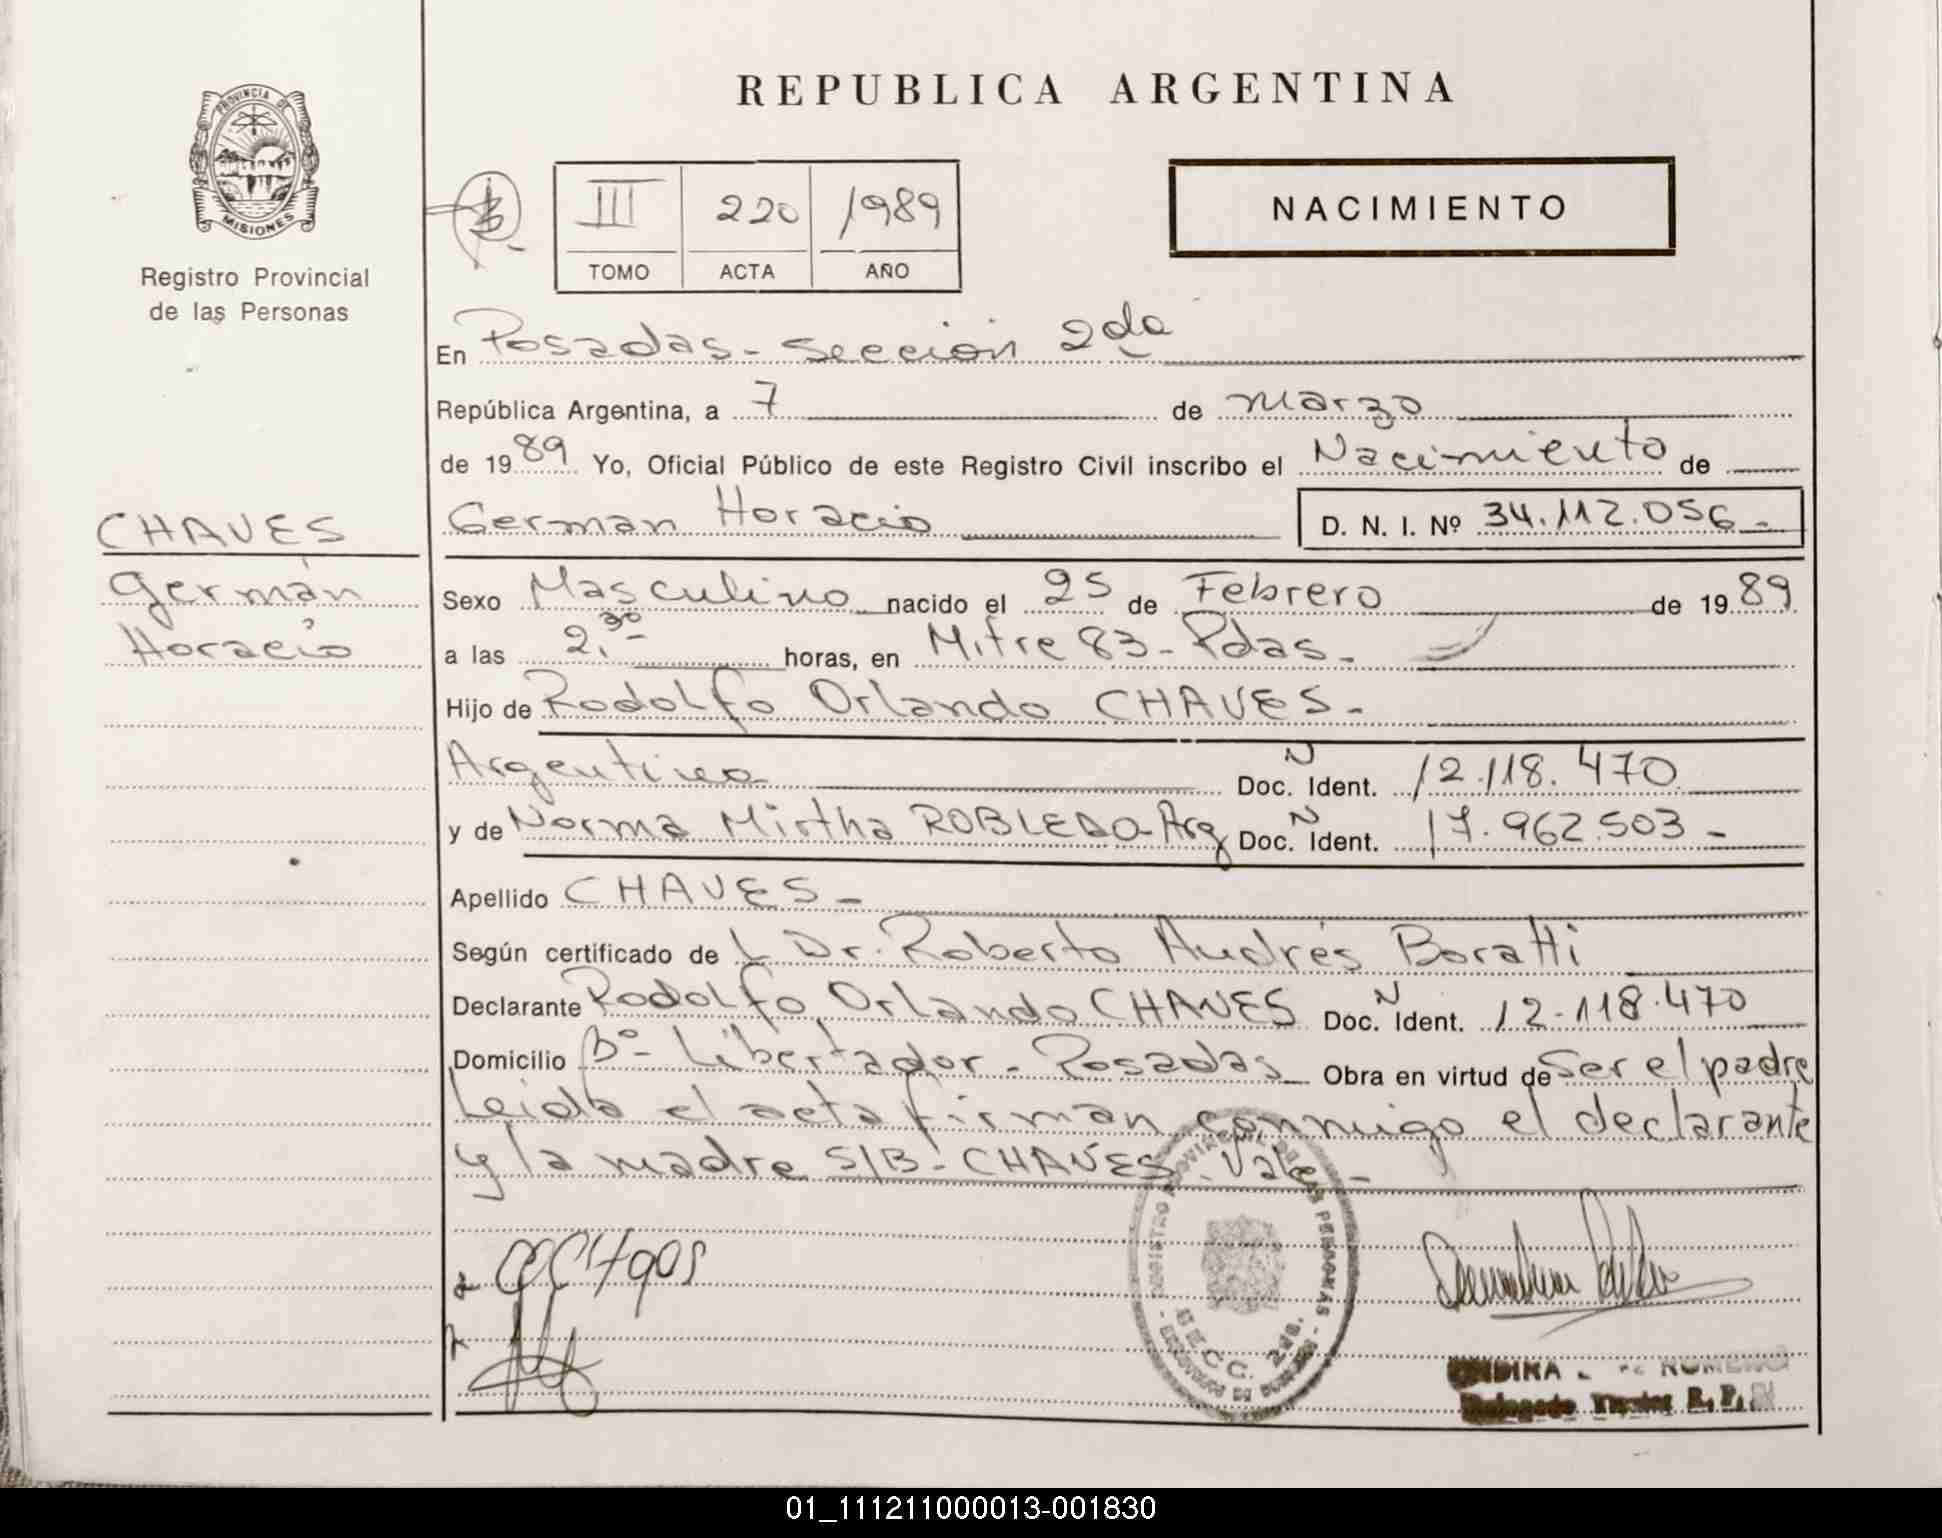 REPUBLICA ARGENTINA
PROVINCIA DE
MISIONES
Registro Provincial
de las Personas
III 220 1989
TOMO ACTA AÑO
NACIMIENTO
En Posadas - Sección 2da
República Argentina, a 7 de Marzo
de 1989 Yo, Oficial Público de este Registro Civil inscribo el Nacimiento de
German Horacio D. N. I. Nº 34.112.056.-
CHAVES
Germán
Horacio
Sexo Masculino nacido el 25 de Febrero de 1989
a las 2.30 horas, en Mitre 83 - Pdas.
Hijo de Rodolfo Orlando CHAVES.-
Argentino N Doc. Ident. 12.118.470
y de Norma Mirtha ROBLEDO - Arg N Doc. Ident. 17.962.503 -
Apellido CHAVES -
Según certificado de L Dr. Roberto Andrés Boratti
Declarante Rodolfo Orlando CHAVES N Doc. Ident. 12.118.470
Domicilio Bº - Libertador - Posadas Obra en virtud de Ser el padre
Leida el acta firman conmigo el declarante
y la madre S/B - CHAVES - Vale -
REGISTRO PROVINCIAL DE LAS PERSONAS
SECC. 2da.
R. P.
01_111211000013-001830